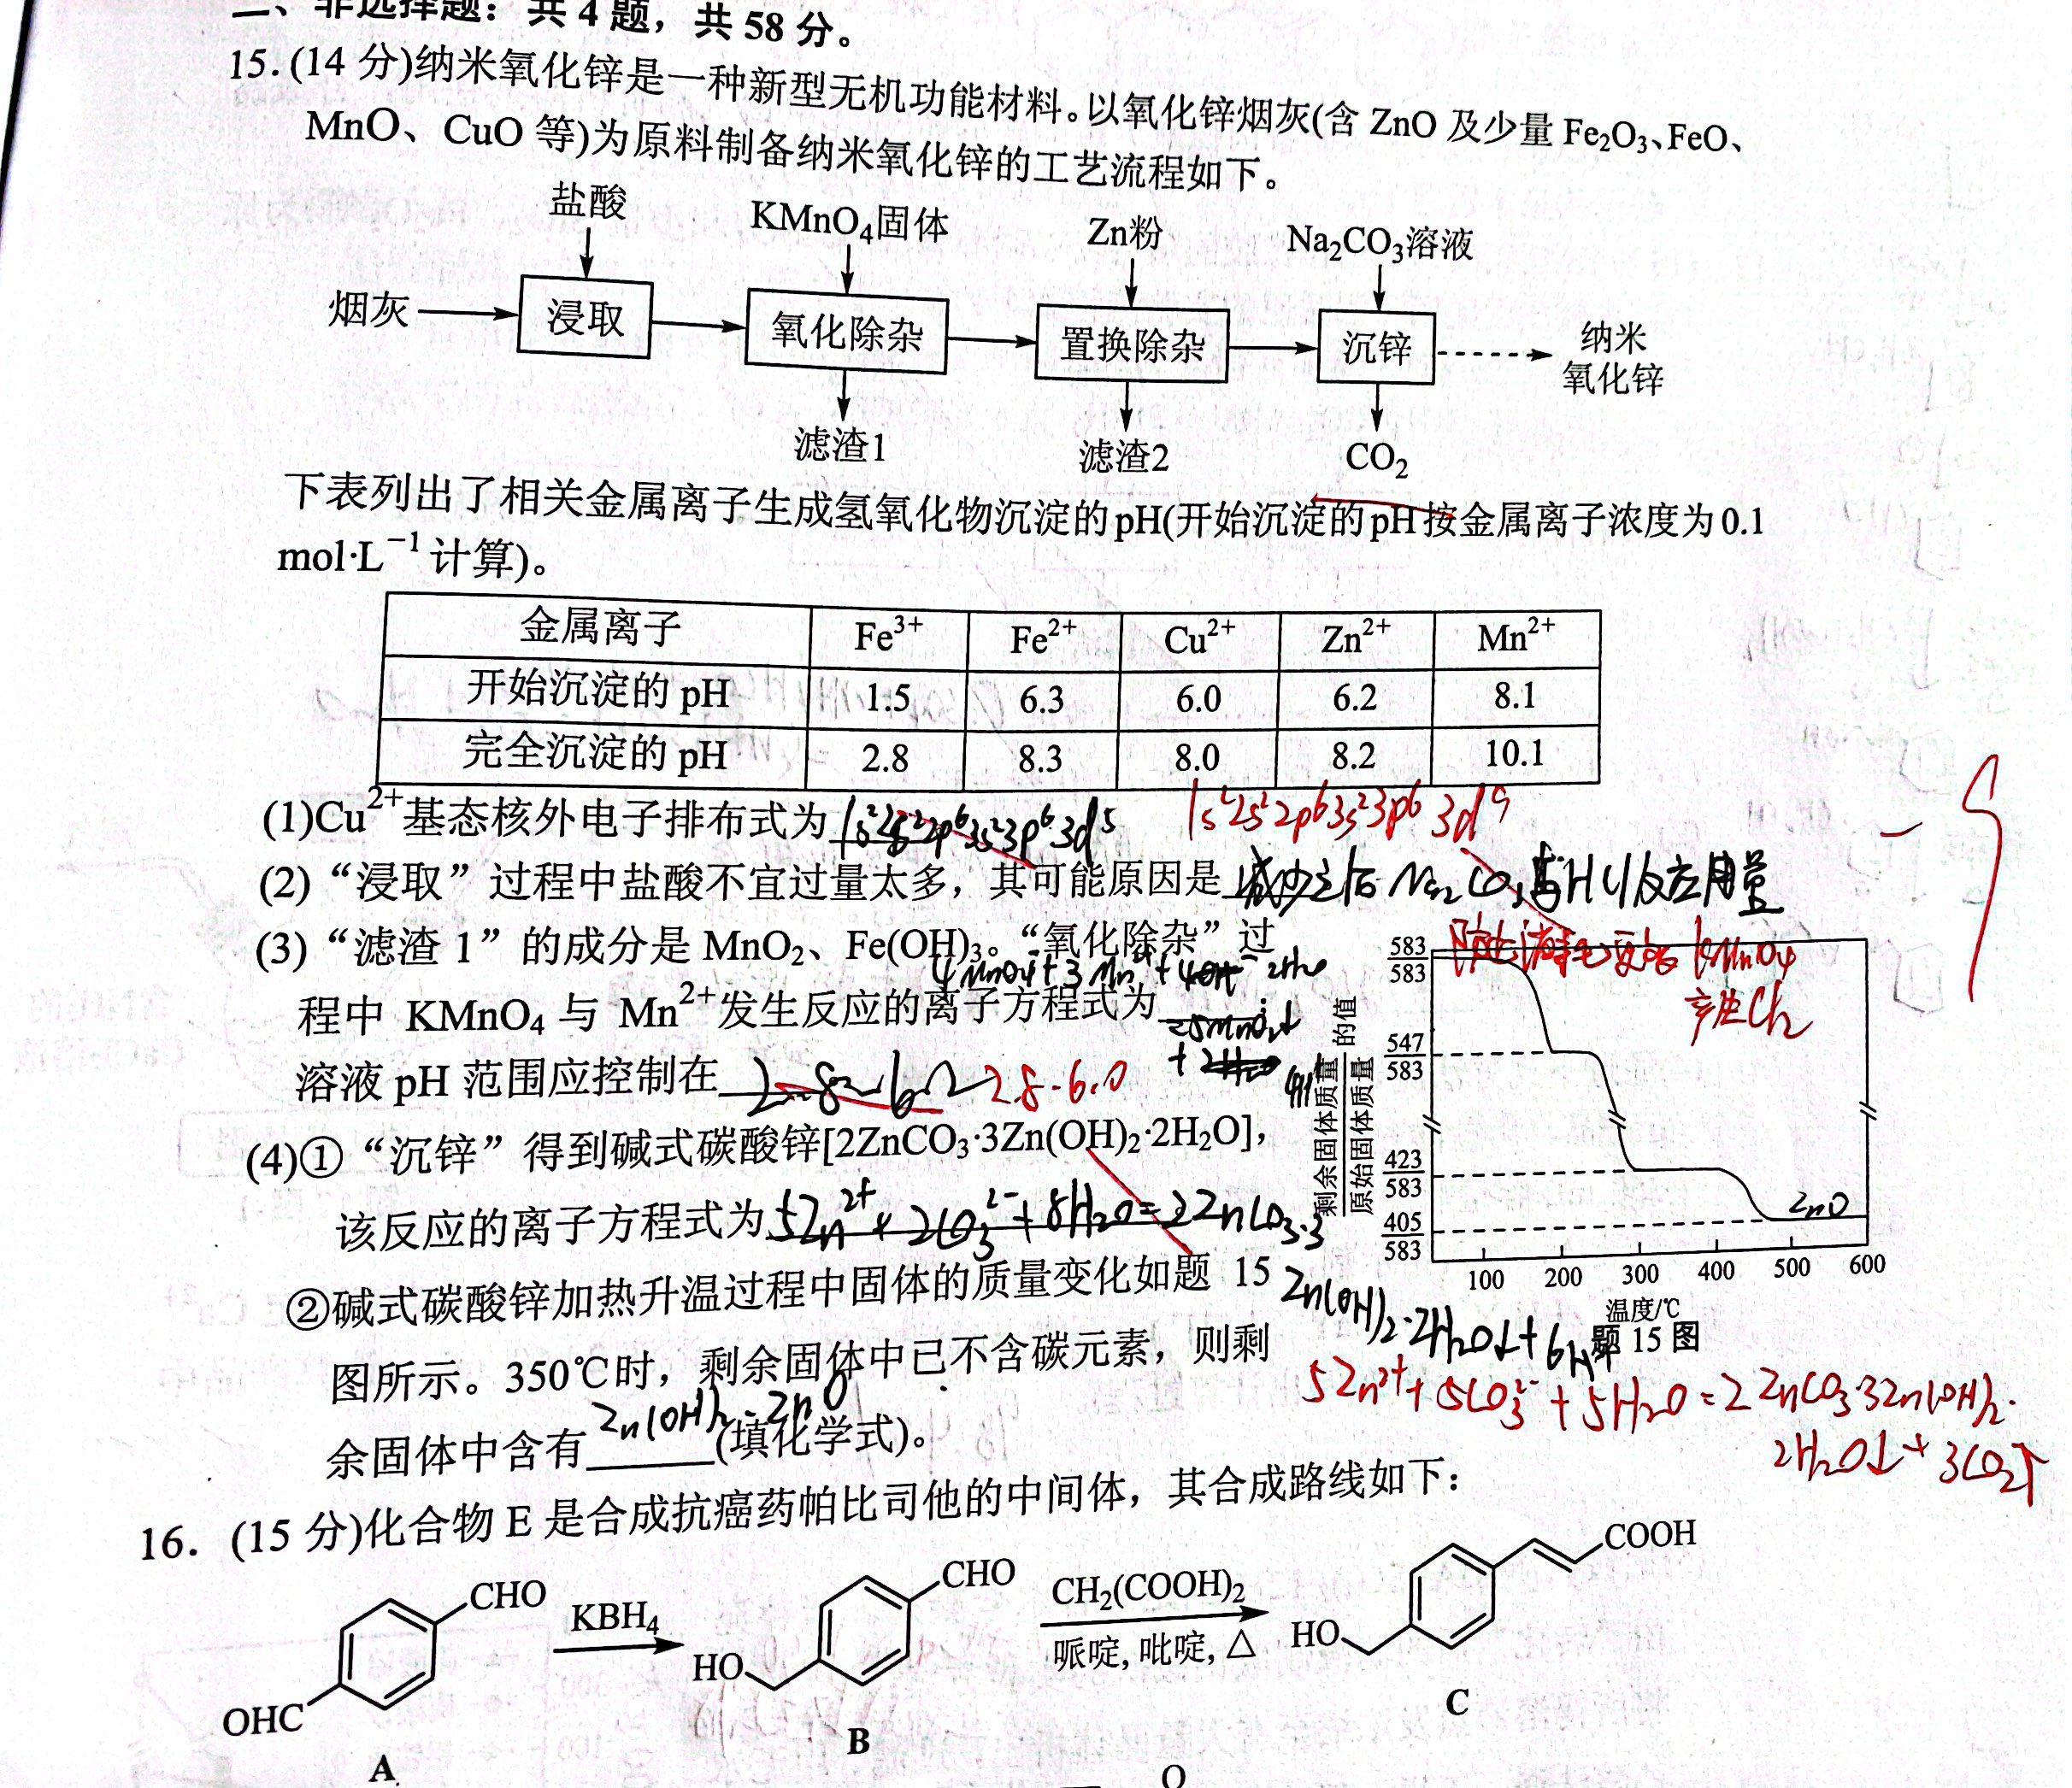 二、非选择题：共4题，共58分。
15.(14分)纳米氧化锌是一种新型无机功能材料。以氧化锌烟灰(含ZnO及少量Fe₂O₃、FeO、
MnO、CuO等)为原料制备纳米氧化锌的工艺流程如下。
盐酸 KMnO₄固体 Zn粉 Na₂CO₃溶液
烟灰 浸取 氧化除杂 置换除杂 沉锌 纳米
氧化锌
滤渣1 滤渣2 CO₂
下表列出了相关金属离子生成氢氧化物沉淀的pH(开始沉淀的pH按金属离子浓度为0.1
mol·L⁻¹计算)。
金属离子 Fe³⁺ Fe²⁺ Cu²⁺ Zn²⁺ Mn²⁺
开始沉淀的pH 1.5 6.3 6.0 6.2 8.1
完全沉淀的pH 2.8 8.3 8.0 8.2 10.1
(1)Cu²⁺基态核外电子排布式为1s²2s²2p⁶3s²3p⁶3d⁵ 1s²2s²2p⁶3s²3p⁶3d⁹
(2)“浸取”过程中盐酸不宜过量太多，其可能原因是减少之后Na₂CO₃与HCl反应用量
防止消耗更多KMnO₄
产生Cl₂
(3)“滤渣1”的成分是MnO₂、Fe(OH)₃。“氧化除杂”过
程中KMnO₄与Mn²⁺发生反应的离子方程式为
=5MnO₂↓
溶液pH范围应控制在2.8~6.2 2.8-6.0
(4)①“沉锌”得到碱式碳酸锌[2ZnCO₃·3Zn(OH)₂·2H₂O]，
该反应的离子方程式为5Zn²⁺+2CO₃²⁻+8H₂O=2ZnCO₃·3
Zn(OH)₂·2H₂O↓+6H⁺
5Zn²⁺+5CO₃²⁻+5H₂O=2ZnCO₃·3Zn(OH)₂·
2H₂O↓+3CO₂↑
②碱式碳酸锌加热升温过程中固体的质量变化如题15
图所示。350℃时，剩余固体中已不含碳元素，则剩
余固体中含有Zn(OH)₂、ZnO(填化学式)。
剩余固体质量
原始固体质量
的值
583
583
547
583
423
583
405
583
ZnO
100 200 300 400 500 600
温度/℃
题15图
16. (15分)化合物E是合成抗癌药帕比司他的中间体，其合成路线如下：
CHO KBH₄ CHO CH₂(COOH)₂ COOH
OHC HO 哌啶, 吡啶, △ HO
A B C
O